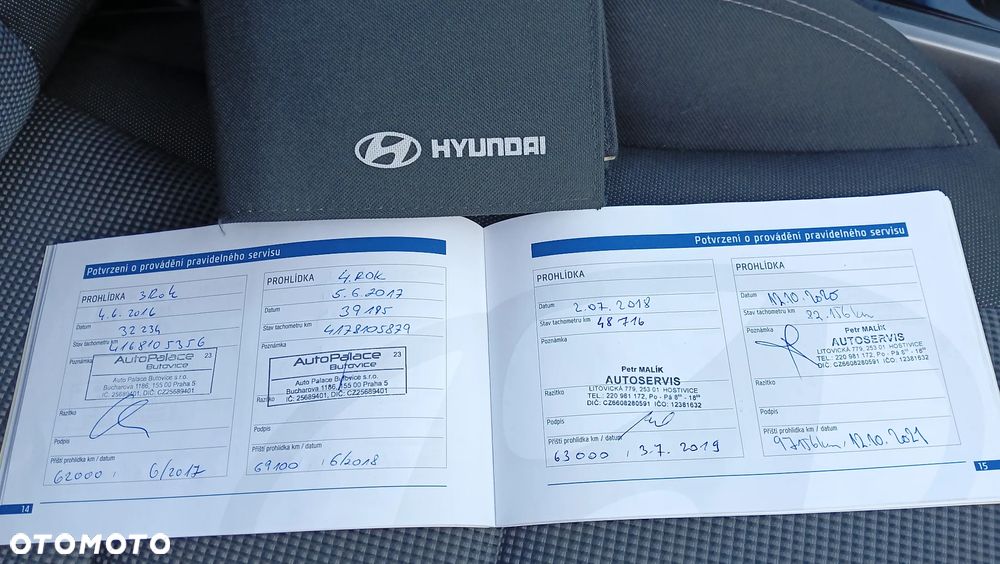 HYUNDAI
Potvrzení o provádění pravidelného servisu
PROHLÍDKA 3 Rok
4.6.2016
Datum
32 234
Stav tachometru km
4168105356
Poznámka
AutoPalace 23
Butovice
Auto Palace Butovice s.r.o.
Bucharova 1186, 155 00 Praha 5
IČ: 25689401, DIČ: CZ25689401
Razítko
Podpis
Příští prohlídka km / datum
62000 , 6/2017
14
PROHLÍDKA 4. ROK
5.6.2017
Datum
39 185
Stav tachometru km
4178105879
Poznámka
AutoPalace 23
Butovice
Auto Palace Butovice s.r.o.
Bucharova 1186, 155 00 Praha 5
IČ: 25689401, DIČ: CZ25689401
Razítko
Podpis
Příští prohlídka km / datum
69100 , 6/2018
Potvrzení o provádění pravidelného servisu
PROHLÍDKA
Datum 2.07.2018
Stav tachometru km 48 716
Poznámka
Petr MALÍK
AUTOSERVIS
LITOVICKÁ 779, 253 01 HOSTIVICE
TEL.: 220 981 172, Po - Pá 8⁰⁰ - 16⁰⁰
DIČ: CZ6608280591 IČO: 12381632
Razítko
Podpis
Příští prohlídka km / datum
63 000 , 3.7.2019
PROHLÍDKA
Datum 12.10.2020
Stav tachometru km 82.156km
Poznámka
Petr MALÍK
AUTOSERVIS
LITOVICKÁ 779, 253 01 HOSTIVICE
TEL.: 220 981 172, Po - Pá 8⁰⁰ - 16⁰⁰
DIČ: CZ6608280591 IČO: 12381632
Razítko
Podpis
Příští prohlídka km / datum
97156km, 12.10.2021
15
OTOMOTO